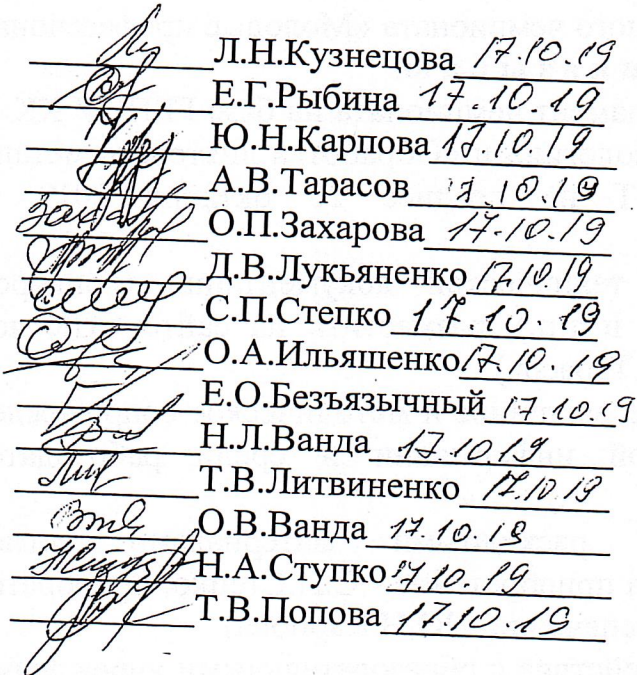 Л.Н.Кузнецова 17.10.19
Е.Г.Рыбина 17.10.19
Ю.Н.Карпова 17.10.19
А.В.Тарасов 17.10.19
О.П.Захарова 17.10.19
Д.В.Лукьяненко 17.10.19
С.П.Степко 17.10.19
О.А.Ильяшенко 17.10.19
Е.О.Безъязычный 17.10.19
Н.Л.Ванда 17.10.19
Т.В.Литвиненко 17.10.19
О.В.Ванда 17.10.19
Н.А.Ступко 17.10.19
Т.В.Попова 17.10.19